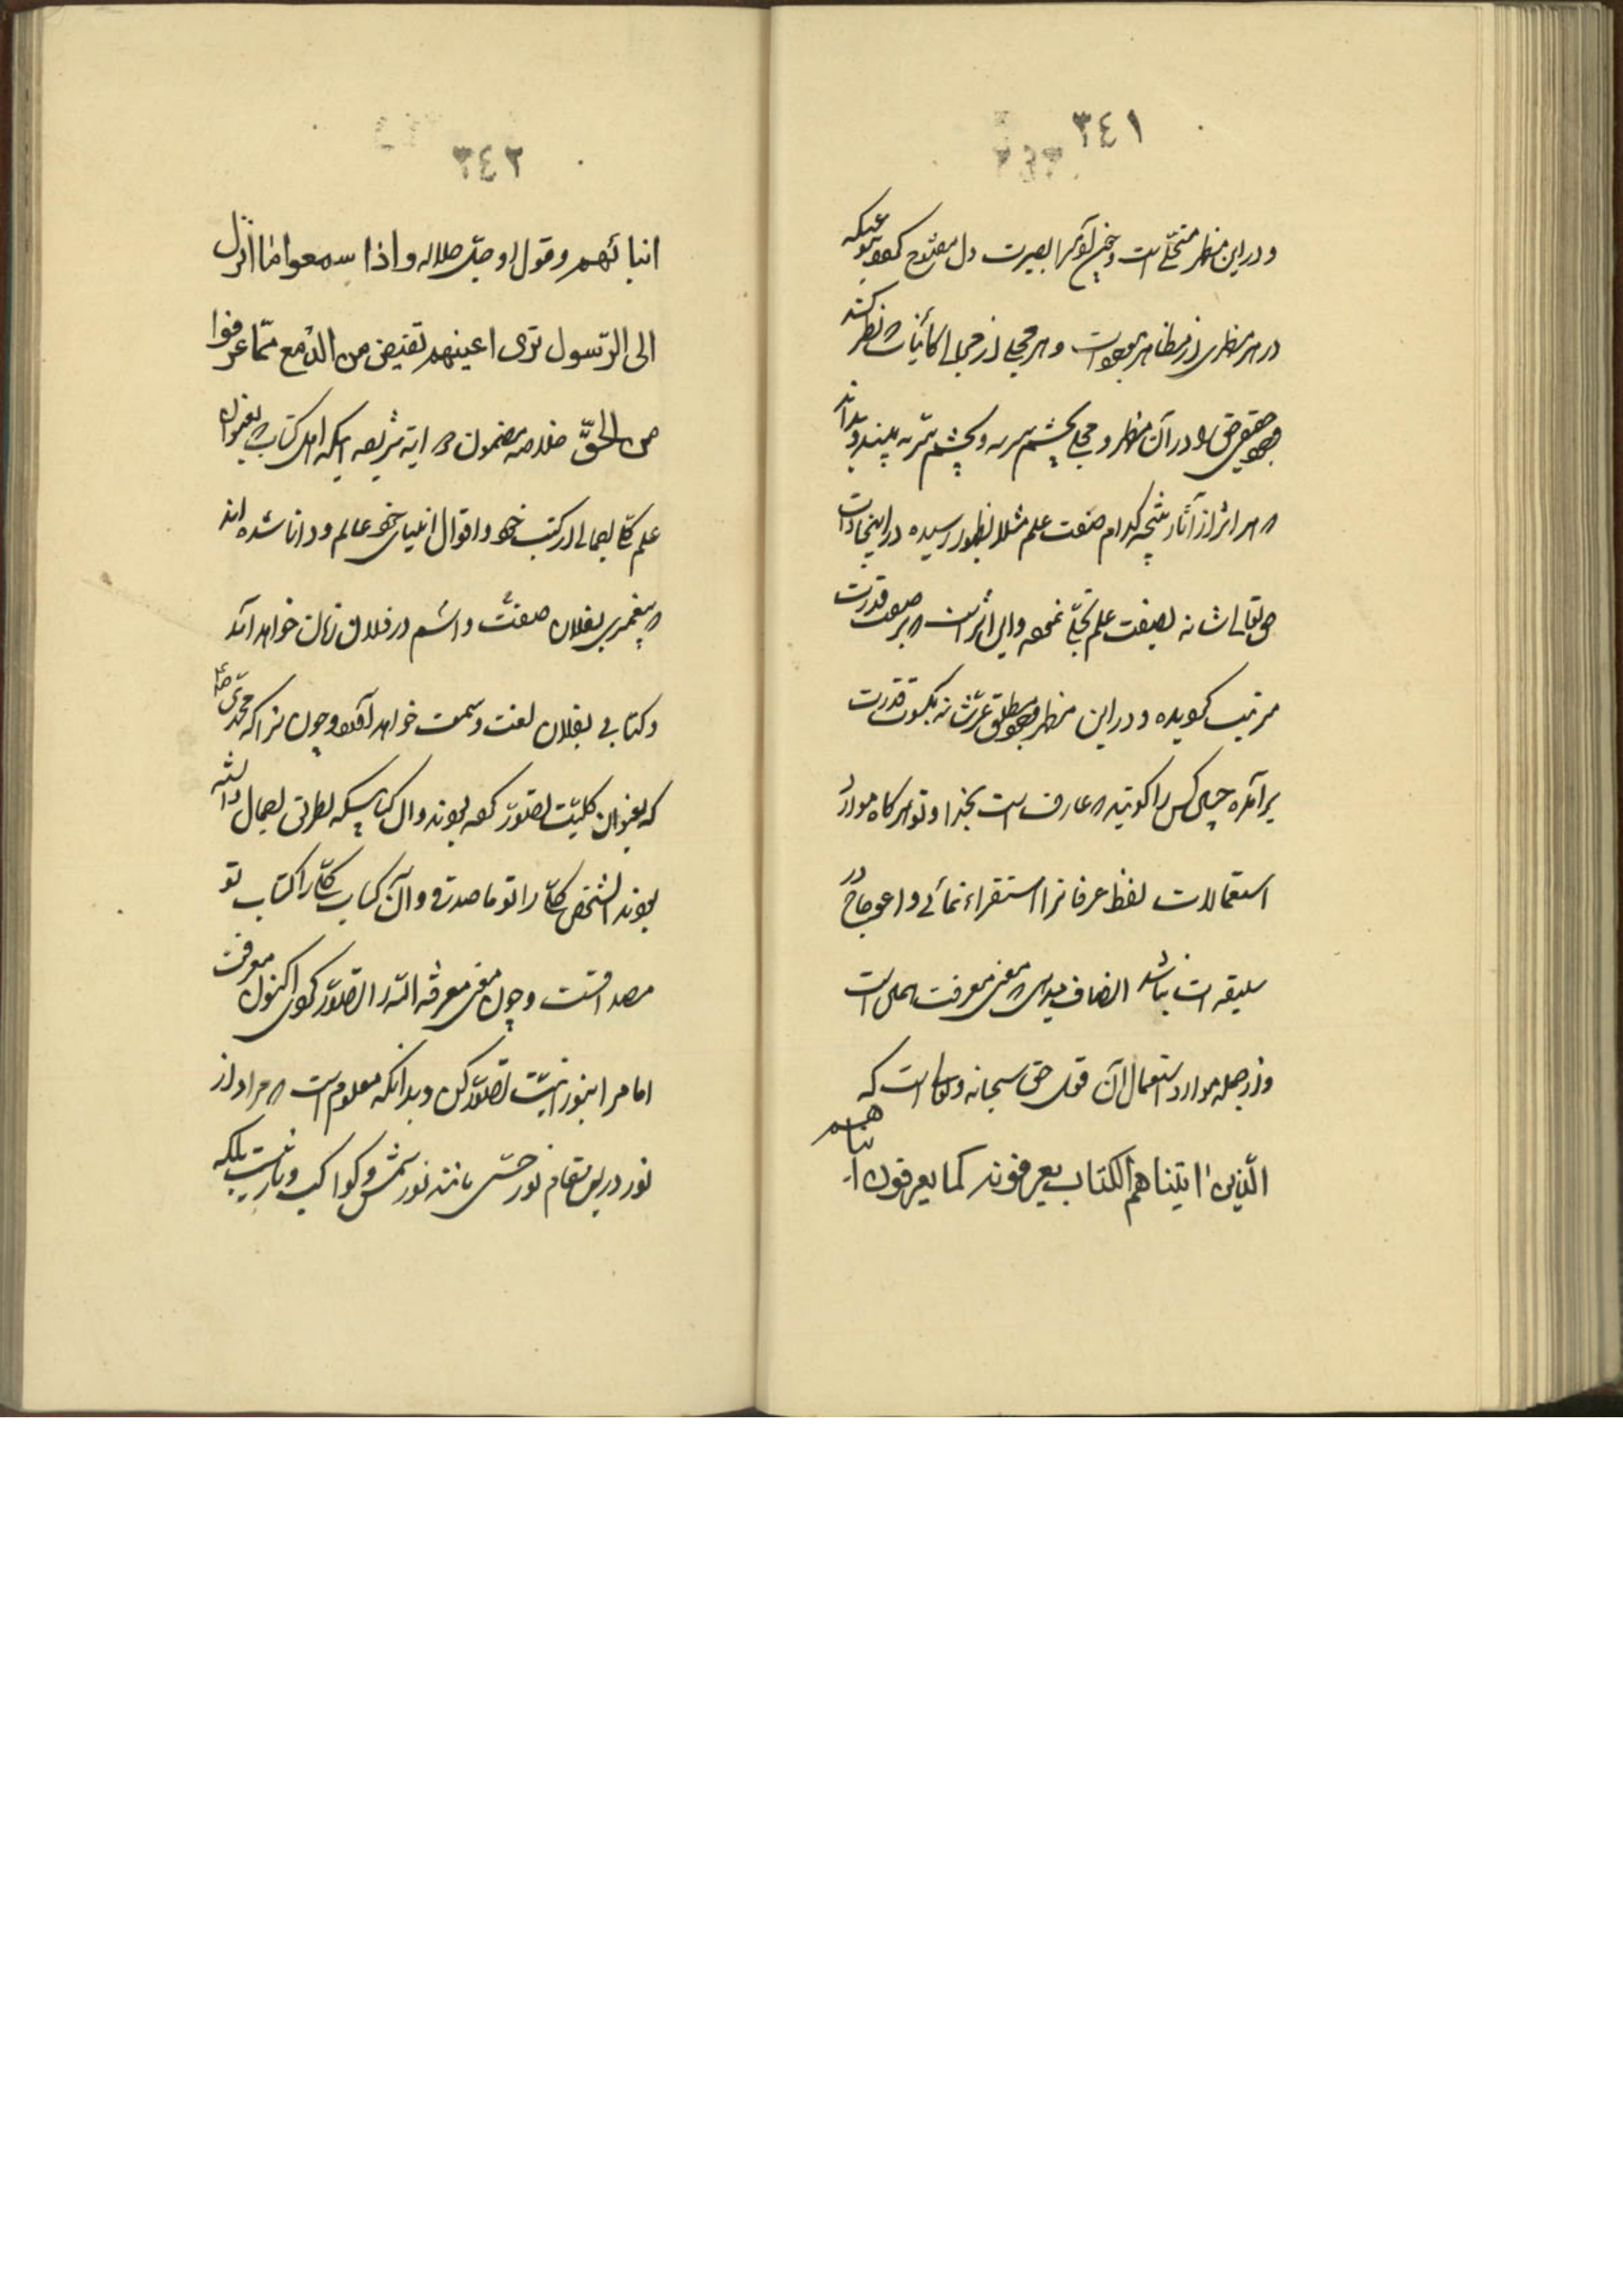 ٣٤١
و در این مظهر متجلّی است و چنین کس را بصیرت دل مفتوح بعنوانیکه
در هر مظهری از مظاهر موجودات و هر مجلی از مجالی کائنات که نظر کند
وجود حقیقی حق را در آن مظهر و مجلی بچشم سر به و بچشم سرّ به بیند و بداند
که هر اثر از آثار نتیجه کدام صفت علم مثلا بظهور رسیده در اینجا ذات
حق تعالی شانه بصفت علم تجلّی نموده و این اثر است که بر صفت قدرت
مرتب گردیده و در این مظهر وجود مطلق عزّ شانه بکسوت قدرت
برآمده چنین کس را گویند که عارف است بخدا و تو هرگاه موارد
استعمالات لفظ عرفانرا استقراء نمائی و اعوجاج در
سلیقه ات نباشد انصاف میدهی که معنی معرفت همین است
و از جمله موارد استعمال آن قول حق سبحانه و تعالی است که
الّذین اتیناهم الکتاب یعرفونه کما یعرفون ابنائهم
٣٤٢
انبائهم و قول او جلّ جلاله و اذا سمعوا ما انزل
الی الرّسول تری اعینهم تفیض من الدّمع ممّا عرفوا
من الحقّ خلاصه مضمون هر دو ایه شریفه اینکه اهل کتاب که بعنوان
علم کلّی اجمالی از کتب خود و اقوال انبیای خود عالم و دانا شده اند
که پیغمبری بفلان صفت و اسم در فلان زمان خواهد آمد
و کتابی بفلان لغت و سمت خواهد آورد و چون نزاکه محمّدی ص
که بعنوان کلیّت تصوّر کرده بودند و آن کتابیکه بطریق اجمال دانسته
بودند الشخص کلّی را تو ما صدقی و آن کتاب کلّی را کتاب تو
مصداقست و چون معنی معرفة اللّه را تصوّر کردی اکنون معرفت
امام را بنورانیّت تصوّر کن و بدانکه معلوم است که مراد از
نور در این مقام نور حسّی مانند نور شمس و کواکب و نار نیست بلکه